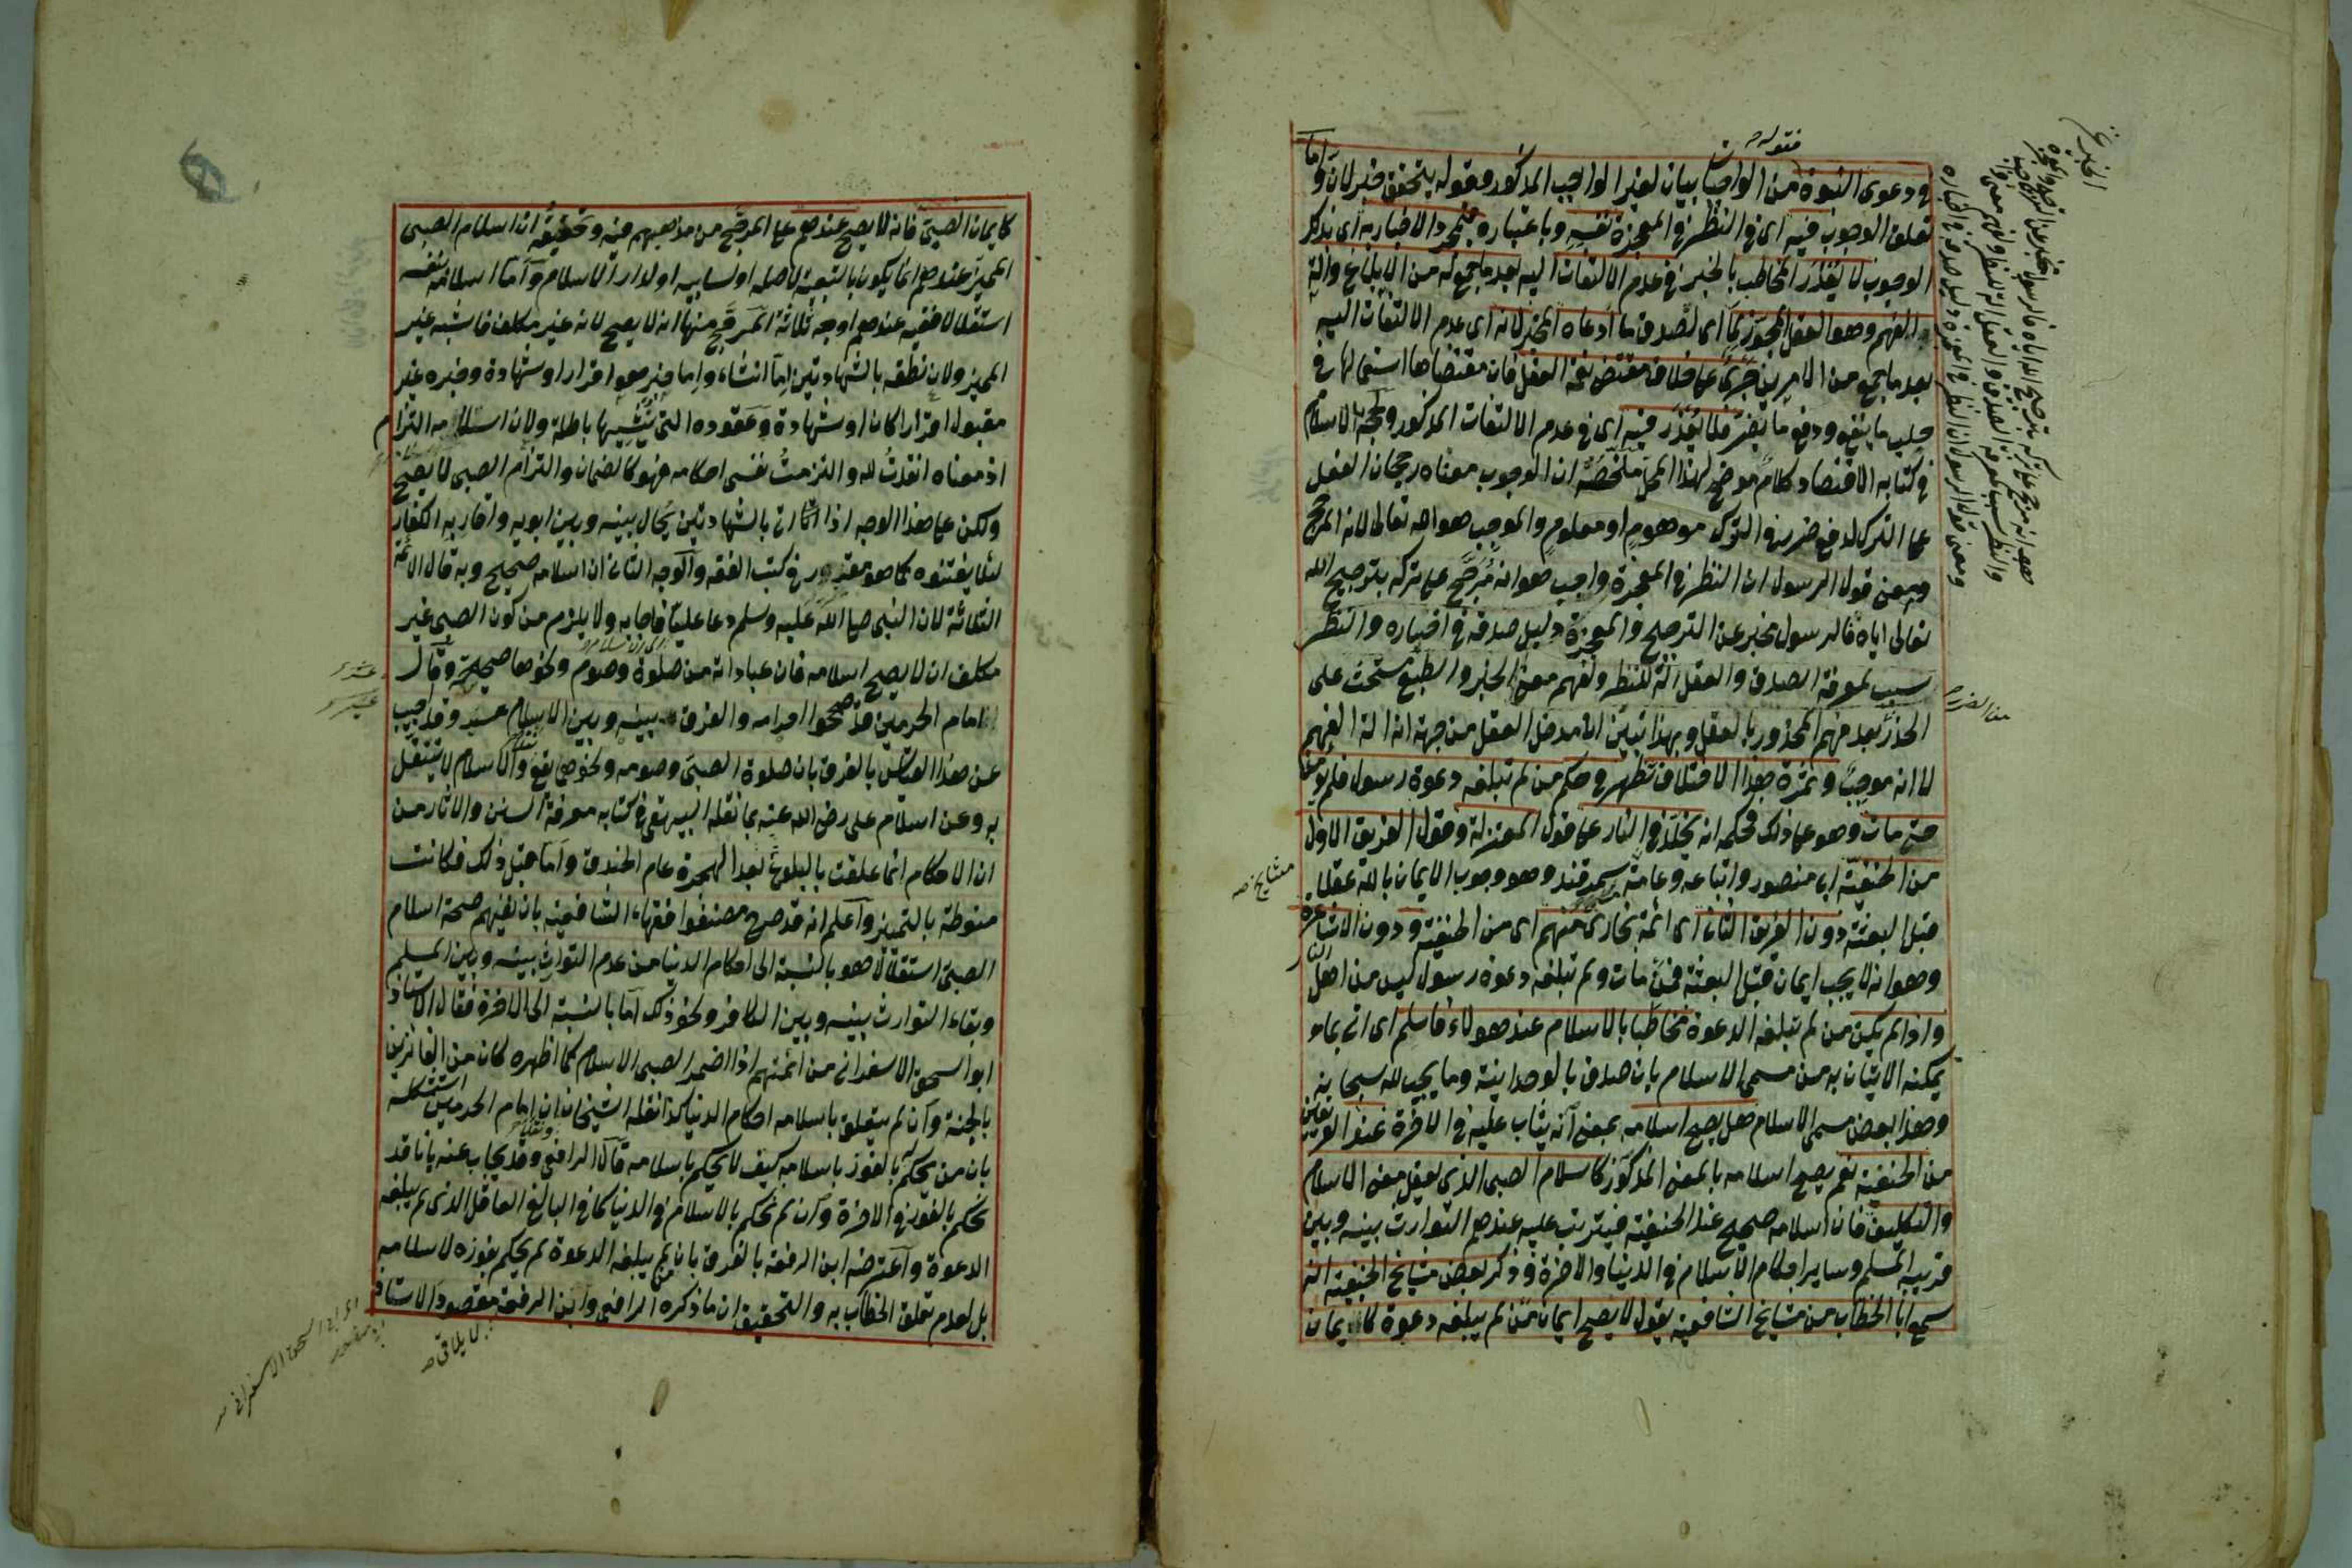 و دعوى النبوة من الواجبات بيان لغير الواجب المذكور وقوله يتحقق خبر لان واما
تعلق الوجوب فيه اى فى النظر فى المعجزة نفسه وباعتباره فمجرد الاخبار به اى بذلك
الوجوب لا يعذر المخاطب بالخبر فى عدم الالتفات اليه بعد ما جمع له من الابلاغ وآلة
الفهم وهو العقل المجوز لما اى لصدق ما ادعاه المخبر لانه اى عدم الالتفات اليه
بعد ما جمع من الامرين جرى على خلاف مقتضى نعمة العقل فان مقتضاها استعمالها فى
جلب ما ينفع ودفع ما يضر فلا يعذر فيه اى فى عدم الالتفات المذكور ولحجة الاسلام
فى كتابه الاقتصاد كلام موضح لهذا المحل ملخصه ان الوجوب معناه رجحان الفعل
على الترك لدفع ضرر فى الترك موهوم او معلوم والموجب هو الله تعالى لانه المرجح
ومعنى قول الرسول ان النظر فى المعجزة واجب هو انه مرجح على تركه بترجيح الله
تعالى اياه فالرسول مخبر عن الترجيح والمعجزة دليل صدقه فى اخباره والنظر
سبب لمعرفة الصدق والعقل آلة للنظر ولفهم معنى الخبر والطبع مستحث على
الحذر بعد فهم المحذور بالعقل وبهذا تبين ان مدخل العقل من جهة انه آلة الفهم
لا انه موجب وثمرة هذا الاختلاف تظهر فى حكم من لم تبلغه دعوة رسول فلم يؤمن
حتى مات وهو على ذلك فحكمه انه يخلد فى النار على قول المعتزلة وقول الفريق الاول
من الحنفية ابى منصور واتباعه وعامة سمرقند وهو وجوب الايمان بالله عقلا
قبل البعثة دون الفريق الثانى اى ائمة بخارى منهم اى من الحنفية ودون الاشاعرة
وهو انه لا يجب ايمان قبل البعثة فمن مات ولم تبلغه دعوة رسول ليس من اهل النار
واذا لم يكن من لم تبلغه الدعوة مخاطبا بالاسلام عند هولاء فاسلم اى اتى بما
يمكنه الاتيان به من مسمى الاسلام بان صدق بالوحدانية وما يجب لله سبحانه
وهذا بعض مسمى الاسلام هل يصح اسلامه بمعنى انه يثاب عليه فى الاخرة عند الفريقين
من الحنفية نعم يصح اسلامه بالمعنى المذكور كاسلام الصبى الذى يعقل معنى الاسلام
والتكليف فان اسلامه صحيح عند الحنفية فيترتب عليه عندهم التوارث بينه وبين
قريبه المسلم وساير احكام الاسلام فى الدنيا والاخرة وذكر بعض مشايخ الحنفية انه
سمع ابا الخطاب من مشايخ الشافعية يقول لا يصح ايمان من لم يبلغه دعوة كايمان
مشايخ
كايمان الصبى فانه لا يصح عندهم على المرجح من مذهبهم فيه وتحقيقه ان اسلام الصبى
المميز عندهم انما يكون بالتبعية لاصله او لسابيه او لدار الاسلام واما اسلامه بنفسه
استقلالا ففيه عندهم اوجه ثلاثة المرجح منها انه لا يصح لانه غير مكلف فاشبه غير
المميز ولان نطقه بالشهادتين اما انشاء واما خبر فهو اقرار او شهادة وخبره غير
مقبول اقرارا كان او شهادة وعقوده التى ينشيها باطلة ولان اسلامه التزام
اذ معناه انقدت لله والتزمت نفسى احكامه فهو كالضمان والتزام الصبى لا يصح
ولكن على هذا الوجه اذا اتى بالشهادتين يحال بينه وبين ابويه واقاربه الكفار
لئلا يفتنوه كما هو مقرر فى كتب الفقه والوجه الثانى ان اسلامه صحيح وبه قال الائمة
الثلاثة لان النبى صلى الله عليه وسلم دعا عليا فاجابه ولا يلزم من كون الصبى غير
مكلف ان لا يصح اسلامه فان عباداته من صلوة وصوم ونحوها صحيحة وقال
امام الحرمين قد صححوا احرامه والفرق بينه وبين الاسلام عسر وقد اجيب
عن هذا القياس بالفرق بان صلوة الصبى وصومه ونحوهما يقع نفلا والاسلام لا يتنفل
به وعن اسلام على رضى الله عنه بما نقله البيهقى فى كتابه معرفة السنن والاثار من
ان الاحكام انما علقت بالبلوغ بعد الهجرة عام الخندق واما قبل ذلك فكانت
منوطة بالتمييز واعلم انه قد صرح مصنفوا فقهاء الشافعية بان نفيهم صحة اسلام
الصبى استقلالا هو بالنسبة الى احكام الدنيا من عدم التوارث بينه وبين المسلم
وبقاء التوارث بينه وبين الكافر ونحو ذلك اما بالنسبة الى الاخرة فقال الاستاذ
ابو اسحق الاسفرانى من ائمتهم اذا اضمر الصبى الاسلام كما اظهره كان من الفائزين
بالجنة وان لم يتعلق باسلامه احكام الدنيا كذا نقله الشيخان ان امام الحرمين استشكله
بان من يحكم بالفوز باسلامه كيف لا يحكم باسلامه قال الرافعى وقد يجاب عنه بانا قد
نحكم بالفوز فى الاخرة وان لم نحكم بالاسلام فى الدنيا كما فى البالغ العاقل الذى لم يبلغه
الدعوة واعترضه ابن الرفعة بالفرق بان من لم يبلغه الدعوة لم يحكم بفوزه لاسلامه
بل لعدم تعلق الخطاب به والتحقيق ان ما ذكره الرافعى وابن الرفعة مقصود الاستاذ
اى ابى اسحق الاسفرانى
لا يلاقى